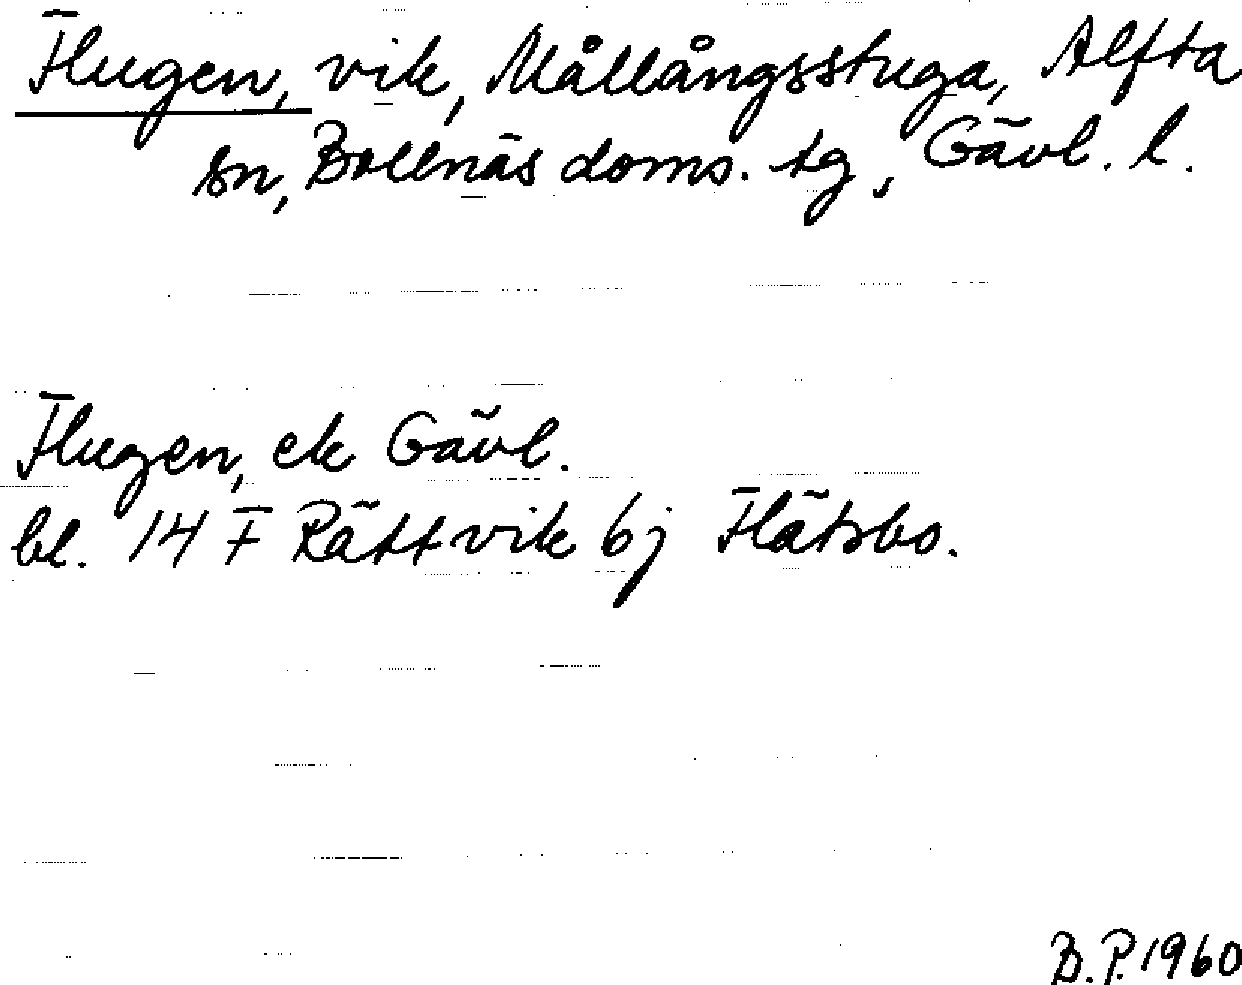 Flugen, vik, Mållångsstuga, Alfta
sn, Bollnäs doms. tg, Gävl. l.
Flugen, ek Gävl.
bl. 14 F Rättvik 6j Flätsbo.
B.P. 1960